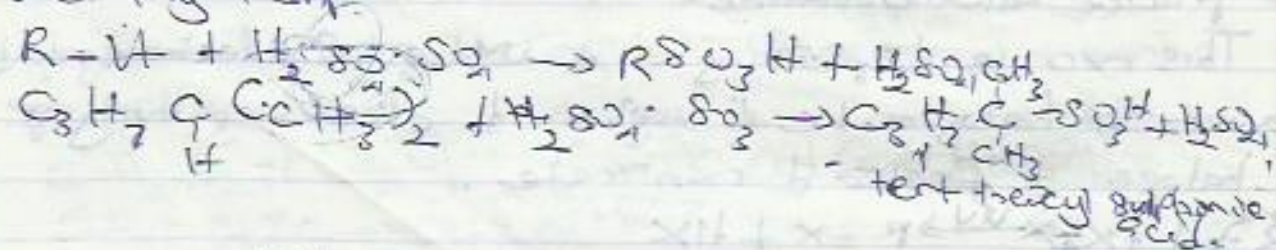 R-H + H2SO4·SO4 → RSO3H + H2SO4
C3H7 C (CH3)2 + H2SO4· SO3 → C3H7 C -SO3H + H2SO4
H
CH3
CH3
tert hexyl sulphonic
acid